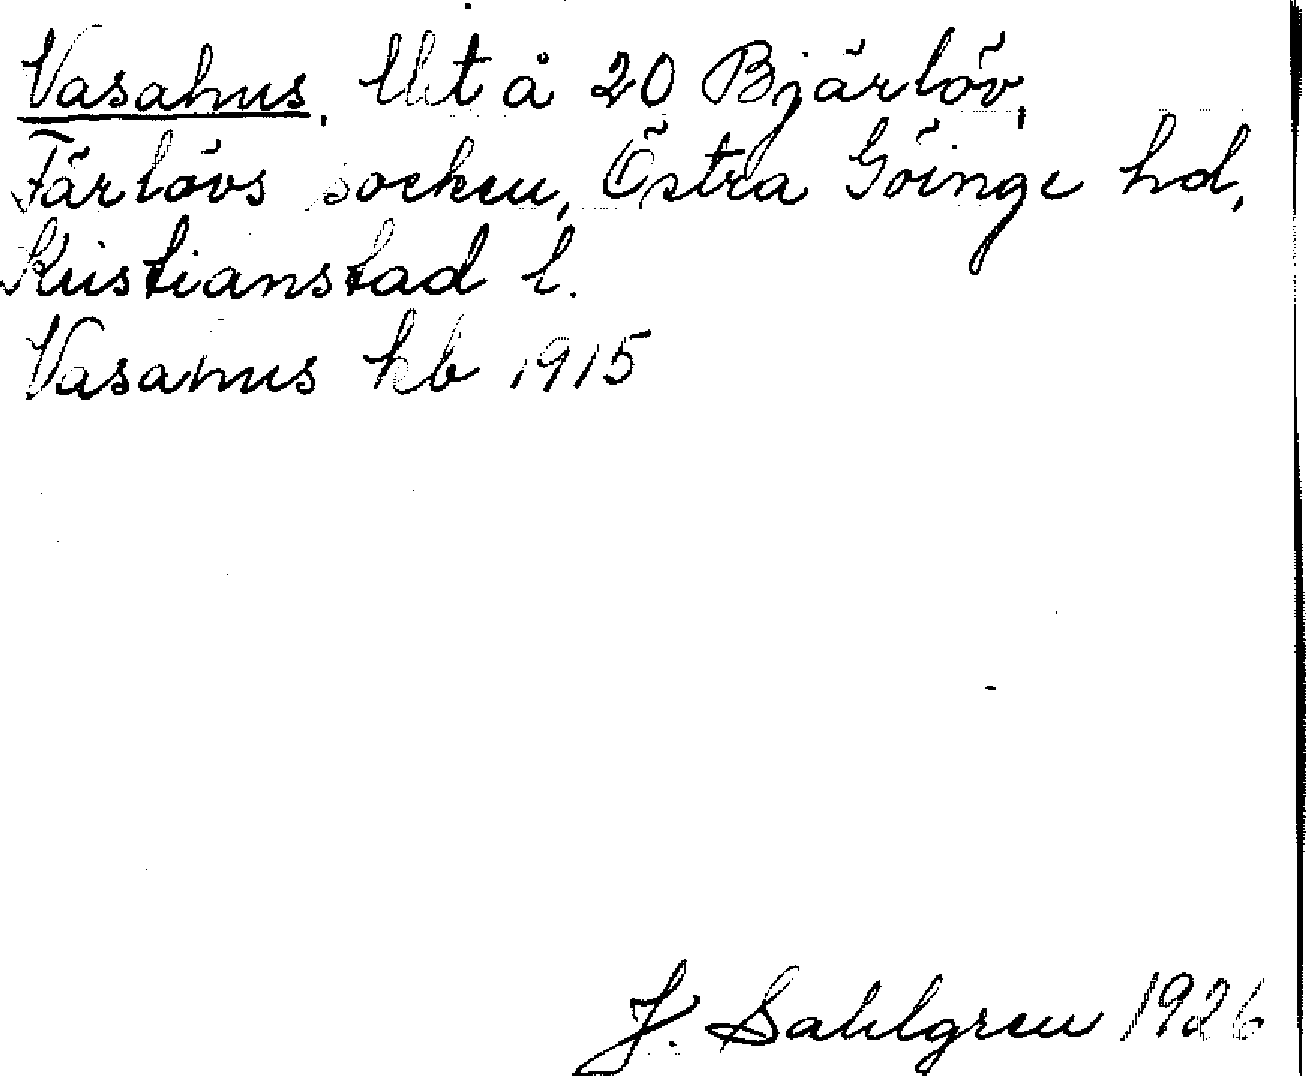 Vasahus. lht å 20 Bjärlöv,
Färlövs socken, Östra Göinge hd,
Kristianstad l.
Vasahus hb 1915
J. Sahlgren 1926